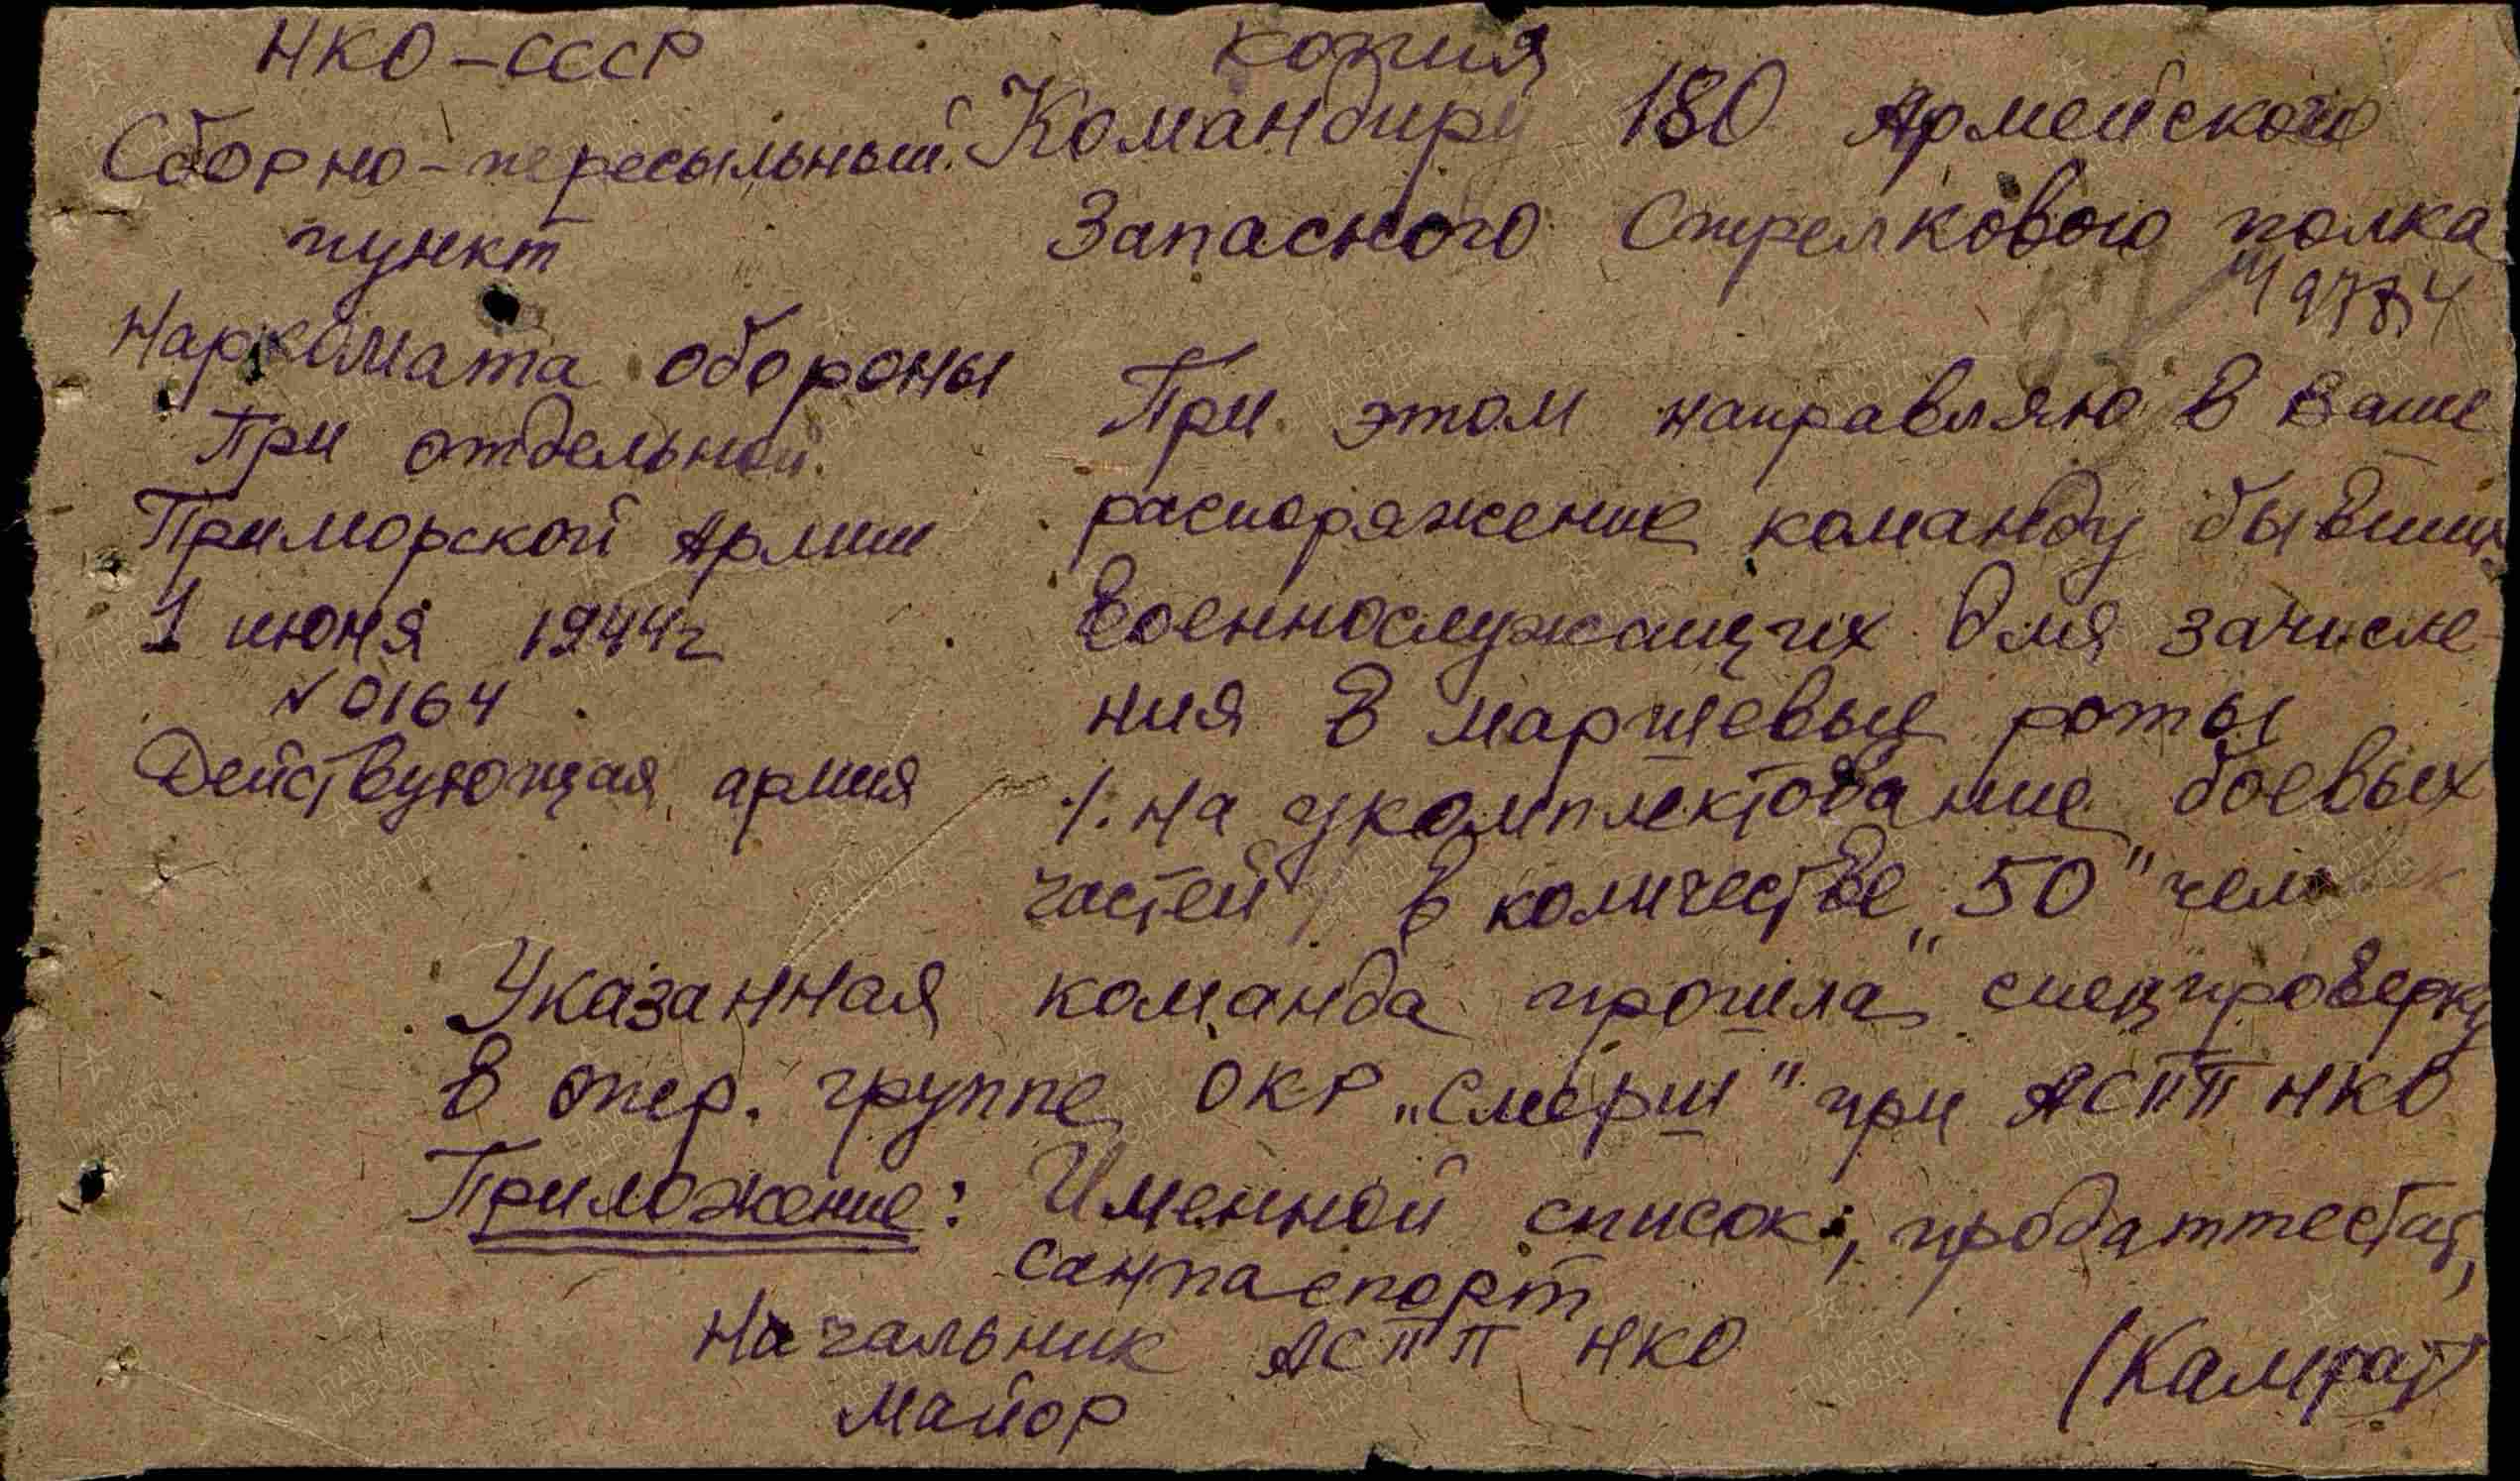 НКО-СССР
Сборно-пересыльный
пункт
Наркомата обороны
При отдельной
Приморской Армии
1 июня 1944г
№ 0164
Действующая армия
копия
Командиру 180 Армейского
Запасного Стрелкового полка
При этом направляю в ваше
распоряжение команду бывших
военнослужащих для зачисле-
ния в маршевые роты
на укомплектование боевых
частей в количестве „50" чел
Указанная команда прошла спецпроверку
в опер. группе ОКР „Смерш" при АСПП НКО
Приложение: Именной список, продаттестат,
санпаспорт
Начальник АСПП НКО
Майор (Камрат)